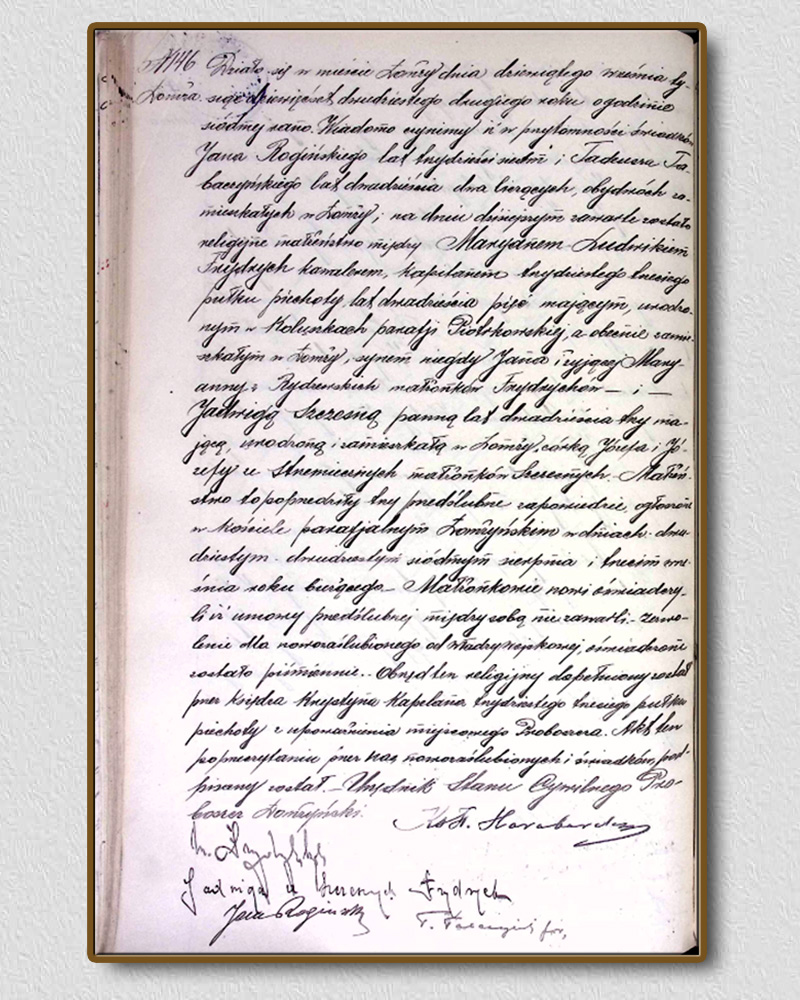 N146 Działo się w mieście Łomży dnia dziewiątego września ty-
Łomża. siąc dziewięćset dwudziestego drugiego roku o godzinie
siódmej rano. Wiadomo czynimy iż w przytomności świadków
Jana Rogińskiego lat trzydzieści siedm i Tadeusza Ta-
baczyńskiego lat dwadzieścia dwa liczących, obydwóch za-
mieszkałych w Łomży, na dniu dzisiejszym zawarte zostało
religijne małżeństwo między Marydnem-Ludwikiem
Frydrych kawalerem, kapitanem trzydziestego trzeciego
pułku piechoty, lat dwadzieścia pięć mającym, urodzo-
nym w Koluszkach parafji Piotrkowskiej, a obecnie zamie-
szkałym w Łomży, synem niegdy Jana i żyjącej Mary-
anny z Rydzewskich małżonków Frydrychów — i —
Jadwigą Szczesną panną lat dwadzieścia trzy ma-
jącą, urodzoną i zamieszkałą w Łomży, córką Józefa i Jó-
zefy ze Strzemiecznych małżonków Szczesnych. Małżeń-
stwo to poprzedziły trzy przedślubne zapowiedzie, ogłoszone
w kościele parafjalnym Łomżyńskim w dniach: dwu-
dziestym dwudziestym siódmym sierpnia i trzecim wrze-
śnia roku bieżącego. Małżonkowie nowi oświadczy-
li iż umowy przedślubnej między sobą nie zawarli. Zezwo-
lenie dla nowozaślubionego od władzy wojskowej, oświadczone
zostało piśmiennie. Obrzęd ten religijny dopełniony został
przez księdza Krystyna Kapelana trzydziestego trzeciego pułku
piechoty z upoważnienia miejscowego Proboszcza. Akt ten
po przeczytaniu przez nas nowozaślubionych i świadków, pod-
pisany został. Urzędnik Stanu Cywilnego Pro-
boszcz Łomżyński:
M. Frydrych
Jadwiga z Szczesnych Frydrych
Jan Rogiński